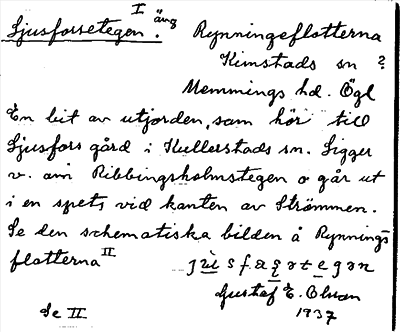 Ljusforsetegen.I äng Rynningeflotterna
Kimstads sn ?
Memmings hd. Ögl
En bit av utjorden, som hör till
Ljusfors gård i Kullerstads sn. Ligger
v. om Ribbingsholmstegen o går ut
i en spets vid kanten av Strömmen.
Se den schematiska bilden å Rynnings-
flotterna II
Gustaf E. Olson
Se II 1937